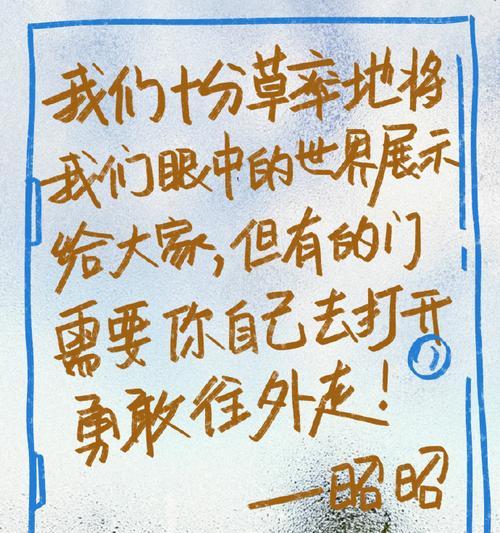 我们十分草率地将
我们眼中的世界展示
给大家,但有的门
需要你自己去打开
勇敢往外走!
—昭昭